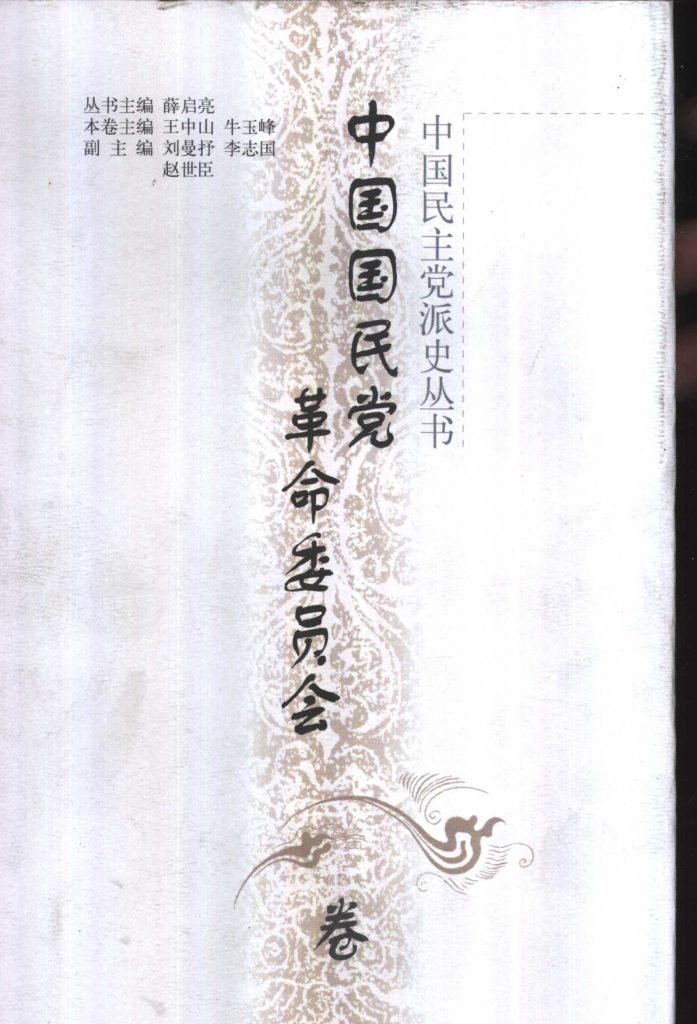 丛书主编 薛启亮
本卷主编 王中山 牛玉峰
副主编 刘曼抒 李志国
赵世臣
中国民主党派史丛书
中国国民党
革命委员会
卷